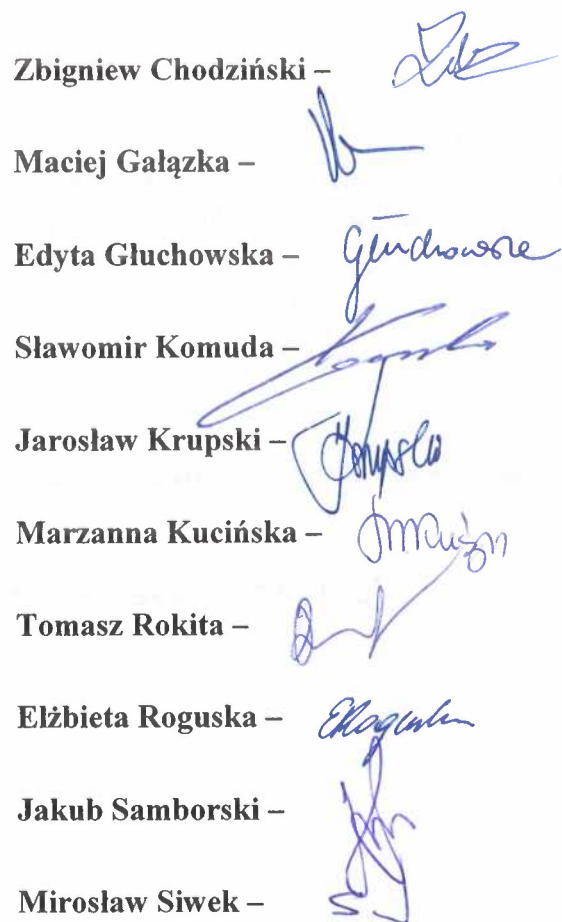 Zbigniew Chodziński –
Maciej Gałązka –
Edyta Głuchowska – Głuchowska
Sławomir Komuda –
Jarosław Krupski –
Marzanna Kucińska –
Tomasz Rokita –
Elżbieta Roguska – ERoguska
Jakub Samborski –
Mirosław Siwek –